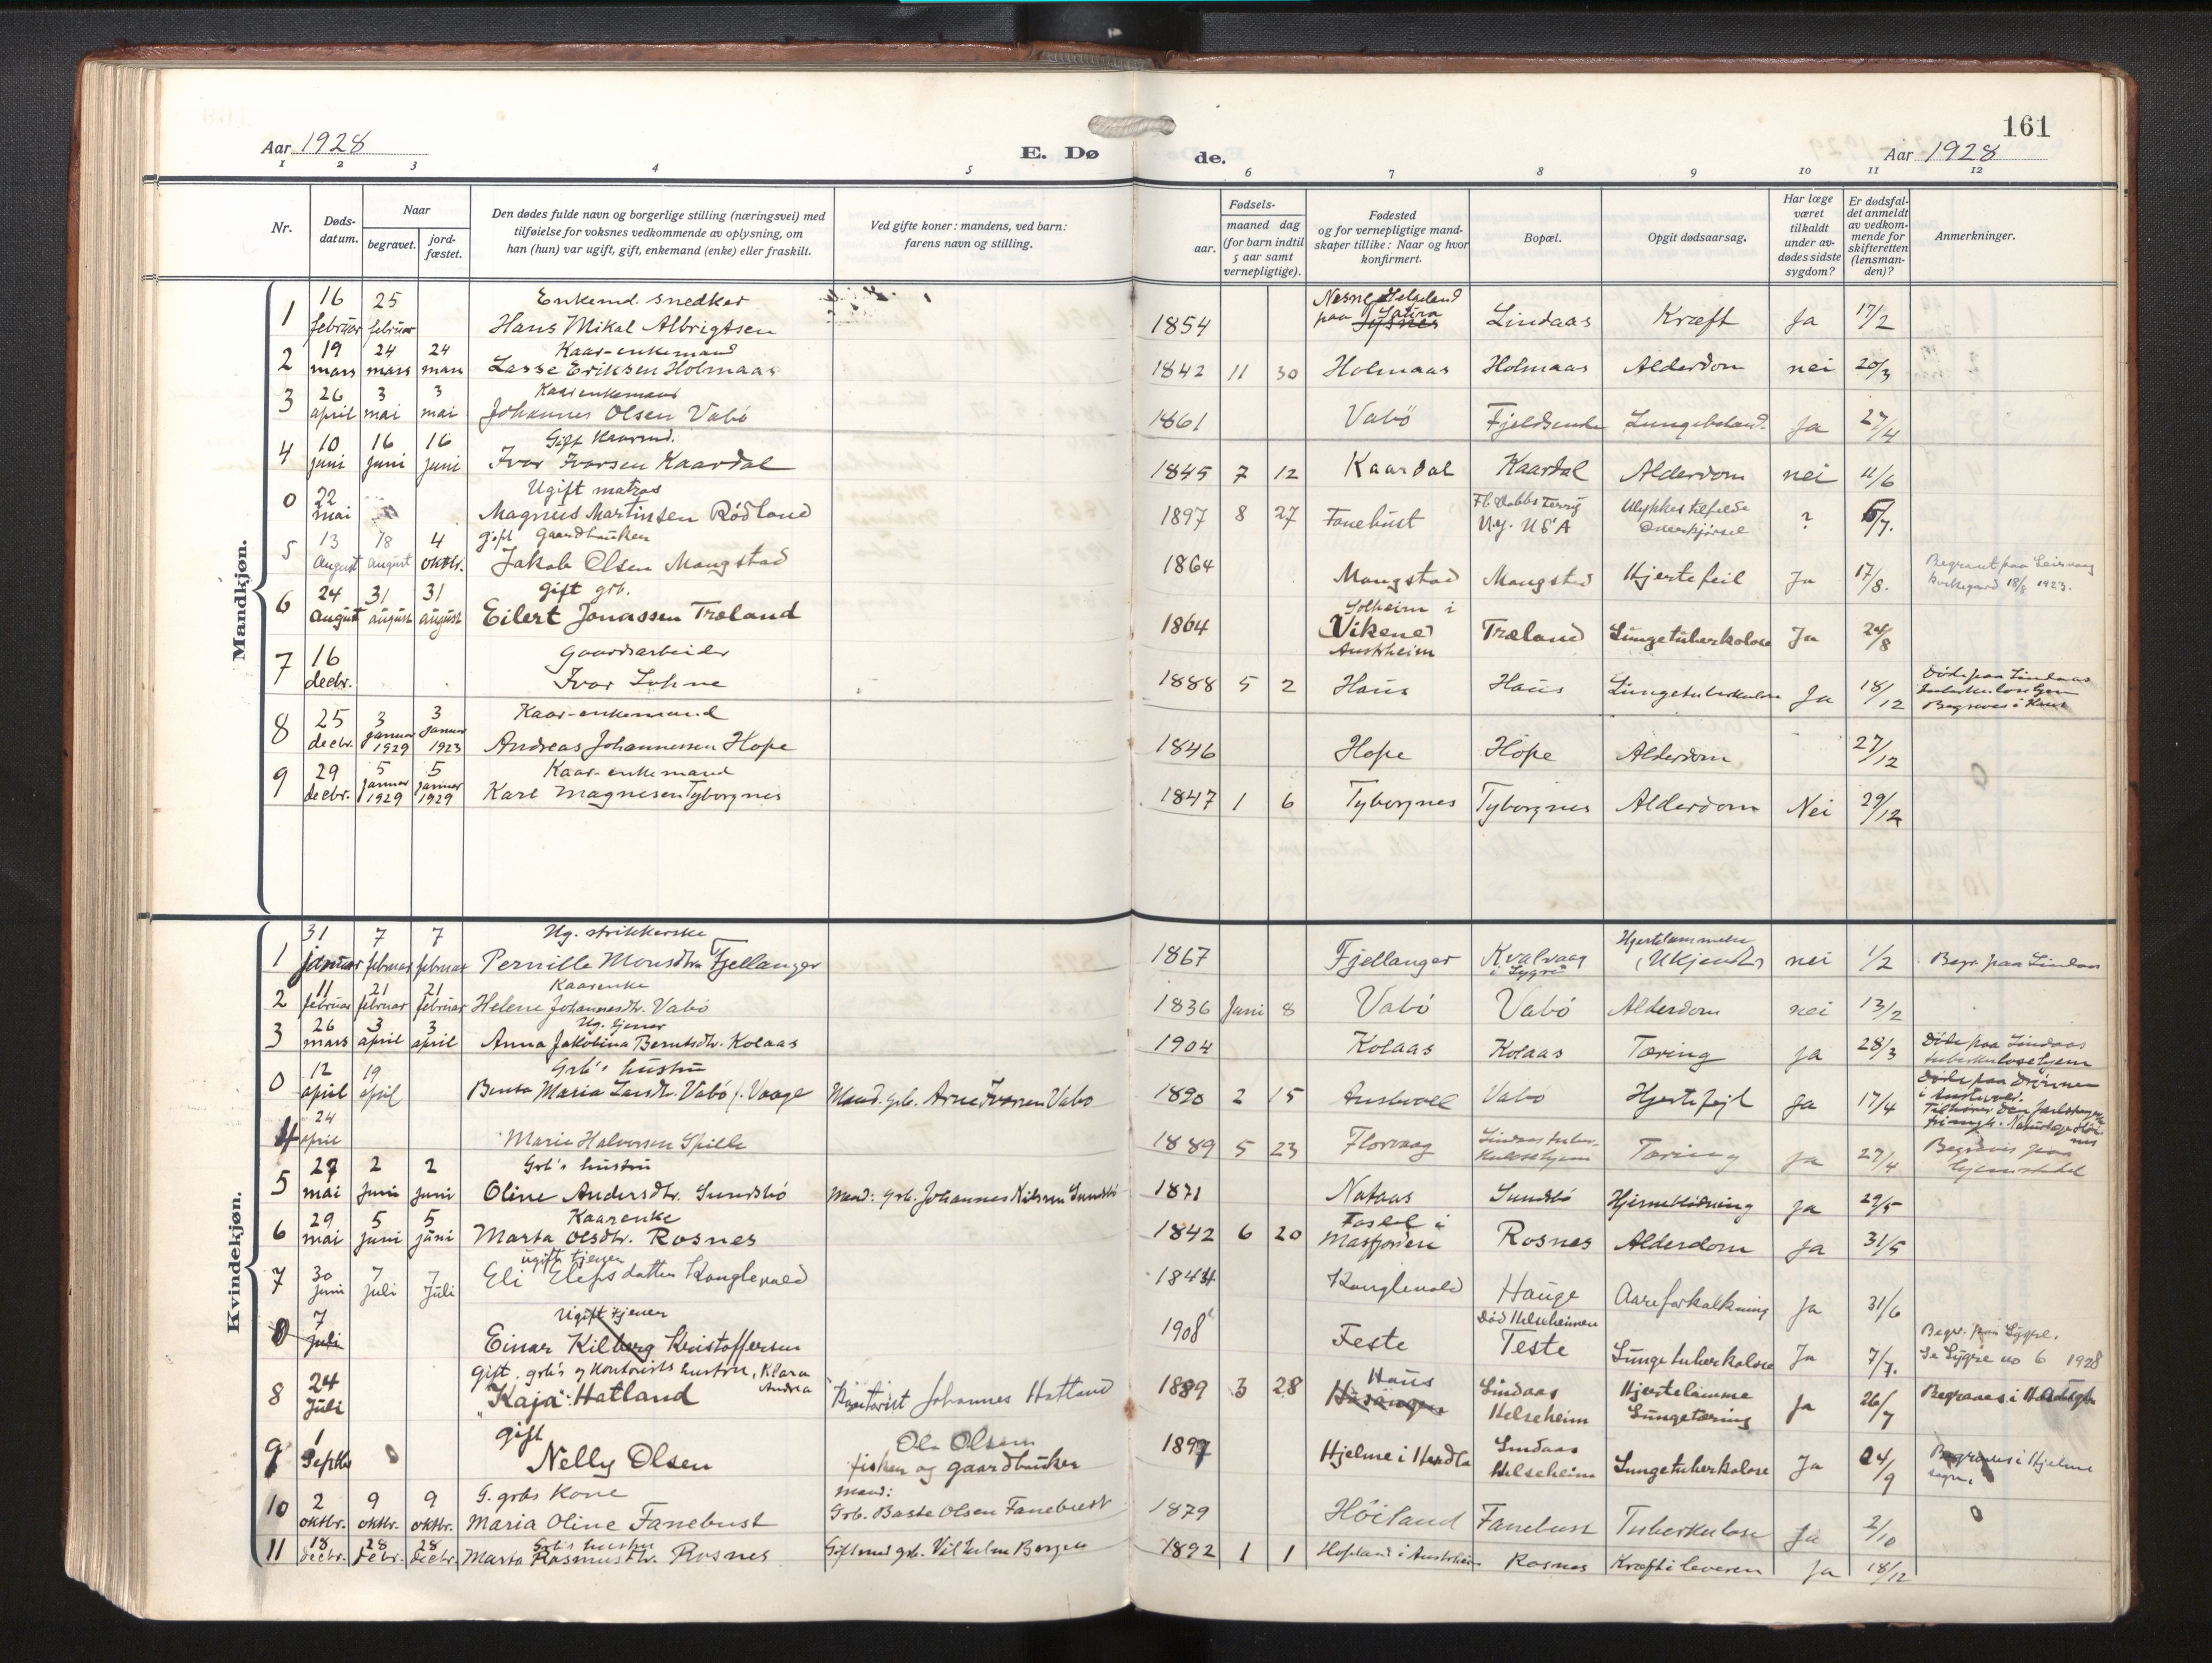 161
Aar 1928
E. Døde.
Aar 1928
1 2 3 4 5 6 7 8 9 10 11 12
Nr.
Døds-datum.
Naar
begravet.
jord-fæstet.
Den dødes fulde navn og borgerlige stilling (næringsvei) med tilføielse for voksnes vedkommende av oplysning, om han (hun) var ugift, gift, enkemand (enke) eller fraskilt.
Ved gifte koner: mandens, ved barn: farens navn og stilling.
Fødsels-
aar.
maaned dag
(for barn indtil 5 aar samt vernepligtige).
Fødested og for vernepligtige mand-skaper tillike: Naar og hvor konfirmert.
Bopæl.
Opgit dødsaarsag.
Har læge været tilkaldt under av-dødes sidste sygdom?
Er dødsfal-det anmeldt av vedkom-mende for skifteretten (lensman-den)?
Anmerkninger.
Mandkjøn.
1 16 februar 25 februar Enkemd. snedker Hans Mikal Albrigtsen 1854 Nesne Helgeland paa Lindaas Kræft Ja 17/2
2 19 mars 24 mars 24 mars Kaar-enkemand Lasse Eriksen Holmaas 1842 11 30 Holmaas Holmaas Alderdom nei 20/3
3 26 april 3 mai 3 mai Kaarenkemand Johannes Olsen Vabö 1861 Vabö Fjeldsende Lungebetænd. Ja 27/4
4 10 juni 16 juni 16 juni Gift Kaarmd. Ivar Ivarsen Kaardal 1845 7 12 Kaardal Kaardal Alderdom nei 11/6
0 22 mai Ugift matros Magnus Martinsen Rödland 1897 8 27 Fanebust N.y. USA Ulykkestilfelde Overkjørsel ? 5/7.
5 13 August 18 august 4 oktbr. gift Gaardbruker Jakob Olsen Mongstad 1864 Mongstad Mongstad Hjertefeil Ja 17/8. Begravet paa Leirvaag kirkegaard 18/8 1923.
6 24 August 31 august 31 august gift grb. Eilert Jonassen Træland 1864 Solheim i Vikene Austrheim Træland Lungetuberkolose Ja 24/8
7 16 decbr. Gaardsarbeider Ivar Lohne 1888 5 2 Haus Haus Lungetuberkulose Ja 18/12 Döde paa Lindaas tuberkulosehjem Begraves i Haus
8 25 decbr. 3 januar 1929 3 januar 1923 Kaar-enkemand Andreas Johannessen Hope 1846 Hope Hope Alderdom 27/12
9 29 decbr. 5 januar 1929 5 januar 1929 Kaar-enkemand Karl Magnesen Tyborgnes 1847 1 6 Tyborgnes Tyborgnes Alderdom Nei 29/12
Kvindekjøn.
1 31 januar 7 februar 7 februar Ug. strikkerske Pernille Monsdtr. Fjellanger 1867 Fjellanger Kvalvaag i Lygre Hjertelammelse (Ukjendt) nei 1/2 Begr. paa Lindaas
2 11 februar 21 februar 21 februar Kaarenke Helene Johannesdtr. Vabö 1836 Juni 8 Vabö Vabö Alderdom nei 13/2
3 26 mars 3 april 3 april Ug. tjener Anna Jakobina Berntsdtr. Kolaas 1904 Kolaas Kolaas Tæring ja 28/3 Döde paa Lindaas tuberkulosehjem
0 12 april 19 april Grb's hustru Bertha Maria Larsdtr. Vabö f. Vaage Mand. Grb. Arne Iversen Vabö 1890 2 15 Austvoll Vabö Hjertefejl ja 17/4 Döde paa i Austevoll.
4 24 april Marie Halvorsen Spille 1889 5 23 Florvaag Lindaas tuber-kulosehjem Tæring ja 27/4 Begraves paa hjemstedet
5 27 mai 2 juni 2 juni Grb's hustru Oline Andersdtr. Sundsbö Mand: Grb. Johannes Nilssen Sundsbö 1871 Nataas Sundsbö Hjerneblödning ja 29/5
6 29 mai 5 juni 5 juni Kaarenke Marta Olsdtr. Rosnes 1842 6 20 i Masfjorden Rosnes Alderdom ja 31/5
7 30 juni 7 juli 7 juli ugift tjener Eli Elefsdatter Konglevold 1844 Konglevold Hauge Aareforkalkning ja 31/6
0 7 juli Ugift tjener Einar Kilberg Kristoffersen 1908 Feste Död Helseheimen Teste Lungetuberkolose Ja 7/7. Begr. paa Lygre. Se Lygre no 6 1928
8 24 juli gift. grb's og Kontorists hustru, Klara Andrea "Kaja" Hatland Kontorist Johannes Hatland 1889 3 28 Haus Lindaas Helseheim Hjertelamme Lungetæring ja 26/7 Begraves i
9 1 Septbr gift Nelly Olsen Ole Olsen fisker og gaardbruker 1897 Hjelme i Herdla Lindaas Helseheim Lungetuberkolose Ja 24/9 Begraves i Hjelme sogn.
10 2 oktbr. 9 oktbr. 9 oktbr. G. grbs kone Maria Oline Fanebust Mand: Grb. Baste Olsen Fanebust 1879 Höiland Fanebust Tuberkulose Ja 2/10
11 18 decbr. 28 debr. 28 decbr. Grb's hustru Marta Rasmusdtr. Rosnes Gift med grb. Vilhelm Borgen 1892 1 1 Hopland i Austrheim Rosnes Kræft i leveren Ja 18/12